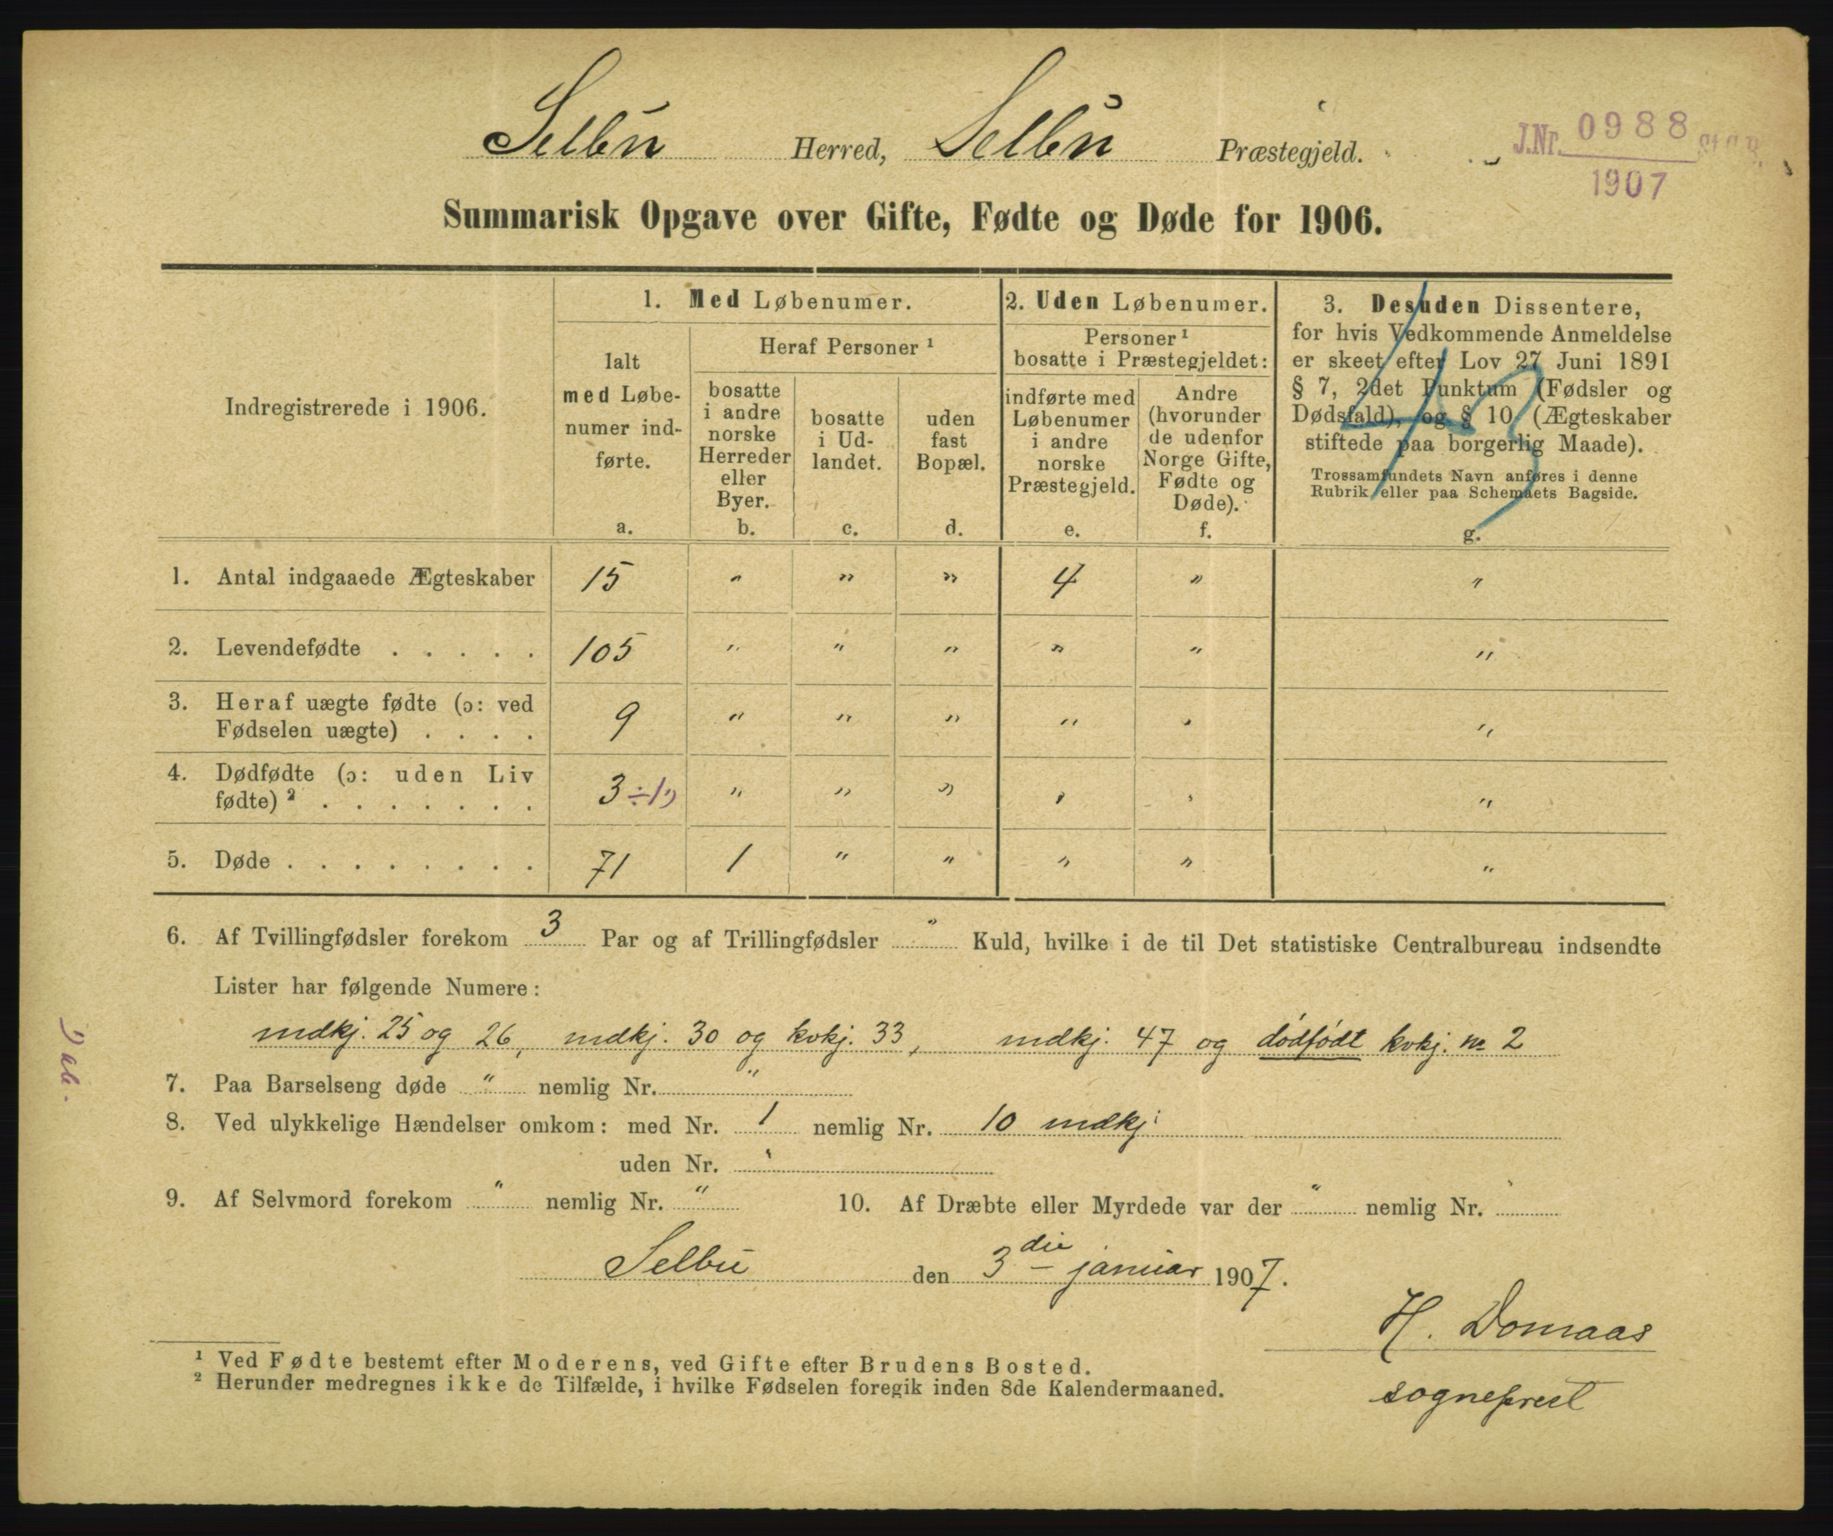 Selbu Herred, Selbu Præstegjeld.
J.Nr. 0988 St.C.B.
1907
Summarisk Opgave over Gifte, Fødte og Døde for 1906.
Indregistrerede i 1906.
1. Med Løbenumer.
Ialt
med Løbe-
numer ind-
førte.
a.
Heraf Personer ¹
bosatte
i andre
norske
Herreder
eller
Byer.
b.
bosatte
i Ud-
landet.
c.
uden
fast
Bopæl.
d.
2. Uden Løbenumer.
Personer ¹
bosatte i Præstegjeldet:
indførte med
Løbenumer
i andre
norske
Præstegjeld.
e.
Andre
(hvorunder
de udenfor
Norge Gifte,
Fødte og
Døde).
f.
3. Desuden Dissentere,
for hvis Vedkommende Anmeldelse
er skeet efter Lov 27 Juni 1891
§ 7, 2det Punktum (Fødsler og
Dødsfald), og § 10 (Ægteskaber
stiftede paa borgerlig Maade).
Trossamfundets Navn anføres i denne
Rubrik eller paa Schemaets Bagside.
g.
1. Antal indgaaede Ægteskaber 15 " " " 4 " "
2. Levendefødte . . . . . 105 " " " " " "
3. Heraf uægte fødte (ɔ: ved
Fødselen uægte) . . . . 9 " " " " " "
4. Dødfødte (ɔ: uden Liv
fødte) ² . . . . . . . 3 ÷1) " " " " " "
5. Døde . . . . . . . . 71 1 " " " " "
6. Af Tvillingfødsler forekom 3 Par og af Trillingfødsler " Kuld, hvilke i de til Det statistiske Centralbureau indsendte
Lister har følgende Numere:
mdkj. 25 og 26, mdkj. 30 og kvkj. 33, mdkj. 47 og dødfødt kvkj. no 2
7. Paa Barselseng døde " nemlig Nr. "
8. Ved ulykkelige Hændelser omkom: med Nr. 1 nemlig Nr. 10 mdkj
uden Nr. "
9. Af Selvmord forekom " nemlig Nr. " 10. Af Dræbte eller Myrdede var der " nemlig Nr. "
Selbu den 3die januar 1907.
H. Domaas
sogneprest
¹ Ved Fødte bestemt efter Moderens, ved Gifte efter Brudens Bosted.
² Herunder medregnes ikke de Tilfælde, i hvilke Fødselen foregik inden 8de Kalendermaaned.